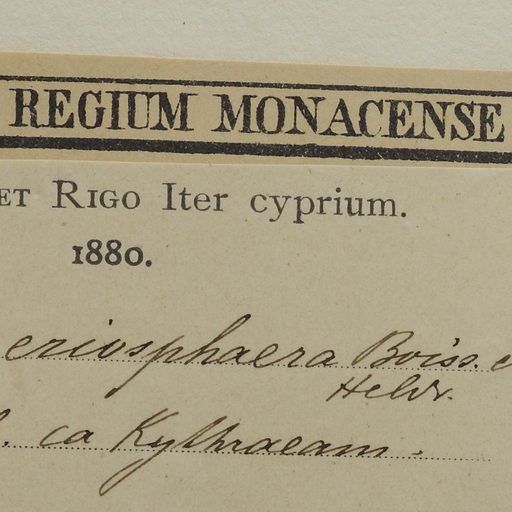 REGIUM MONACENSE
ET RIGO Iter cyprium.
1880.
eriosphaera Boiss. e
Heldr.
l. ca Kythraeam.